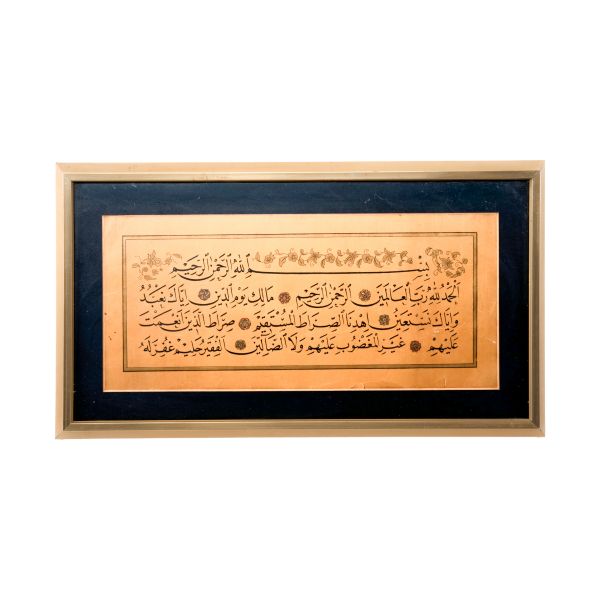 بِسْمِ اللهِ الرَّحْمٰنِ الرَّحِيمِ
اَلْحَمْدُ لِلّٰهِ رَبِّ الْعَالَمِينَ الرَّحْمٰنِ الرَّحِيمِ مَالِكِ يَوْمِ الدِّينِ اِيَّاكَ نَعْبُدُ
وَاِيَّاكَ نَسْتَعِينُ اِهْدِنَا الصِّرَاطَ الْمُسْتَقِيمَ صِرَاطَ الَّذِينَ اَنْعَمْتَ
عَلَيْهِمْ غَيْرِ الْمَغْضُوبِ عَلَيْهِمْ وَلَا الضَّالِّينَ الفقير حليم غفر له